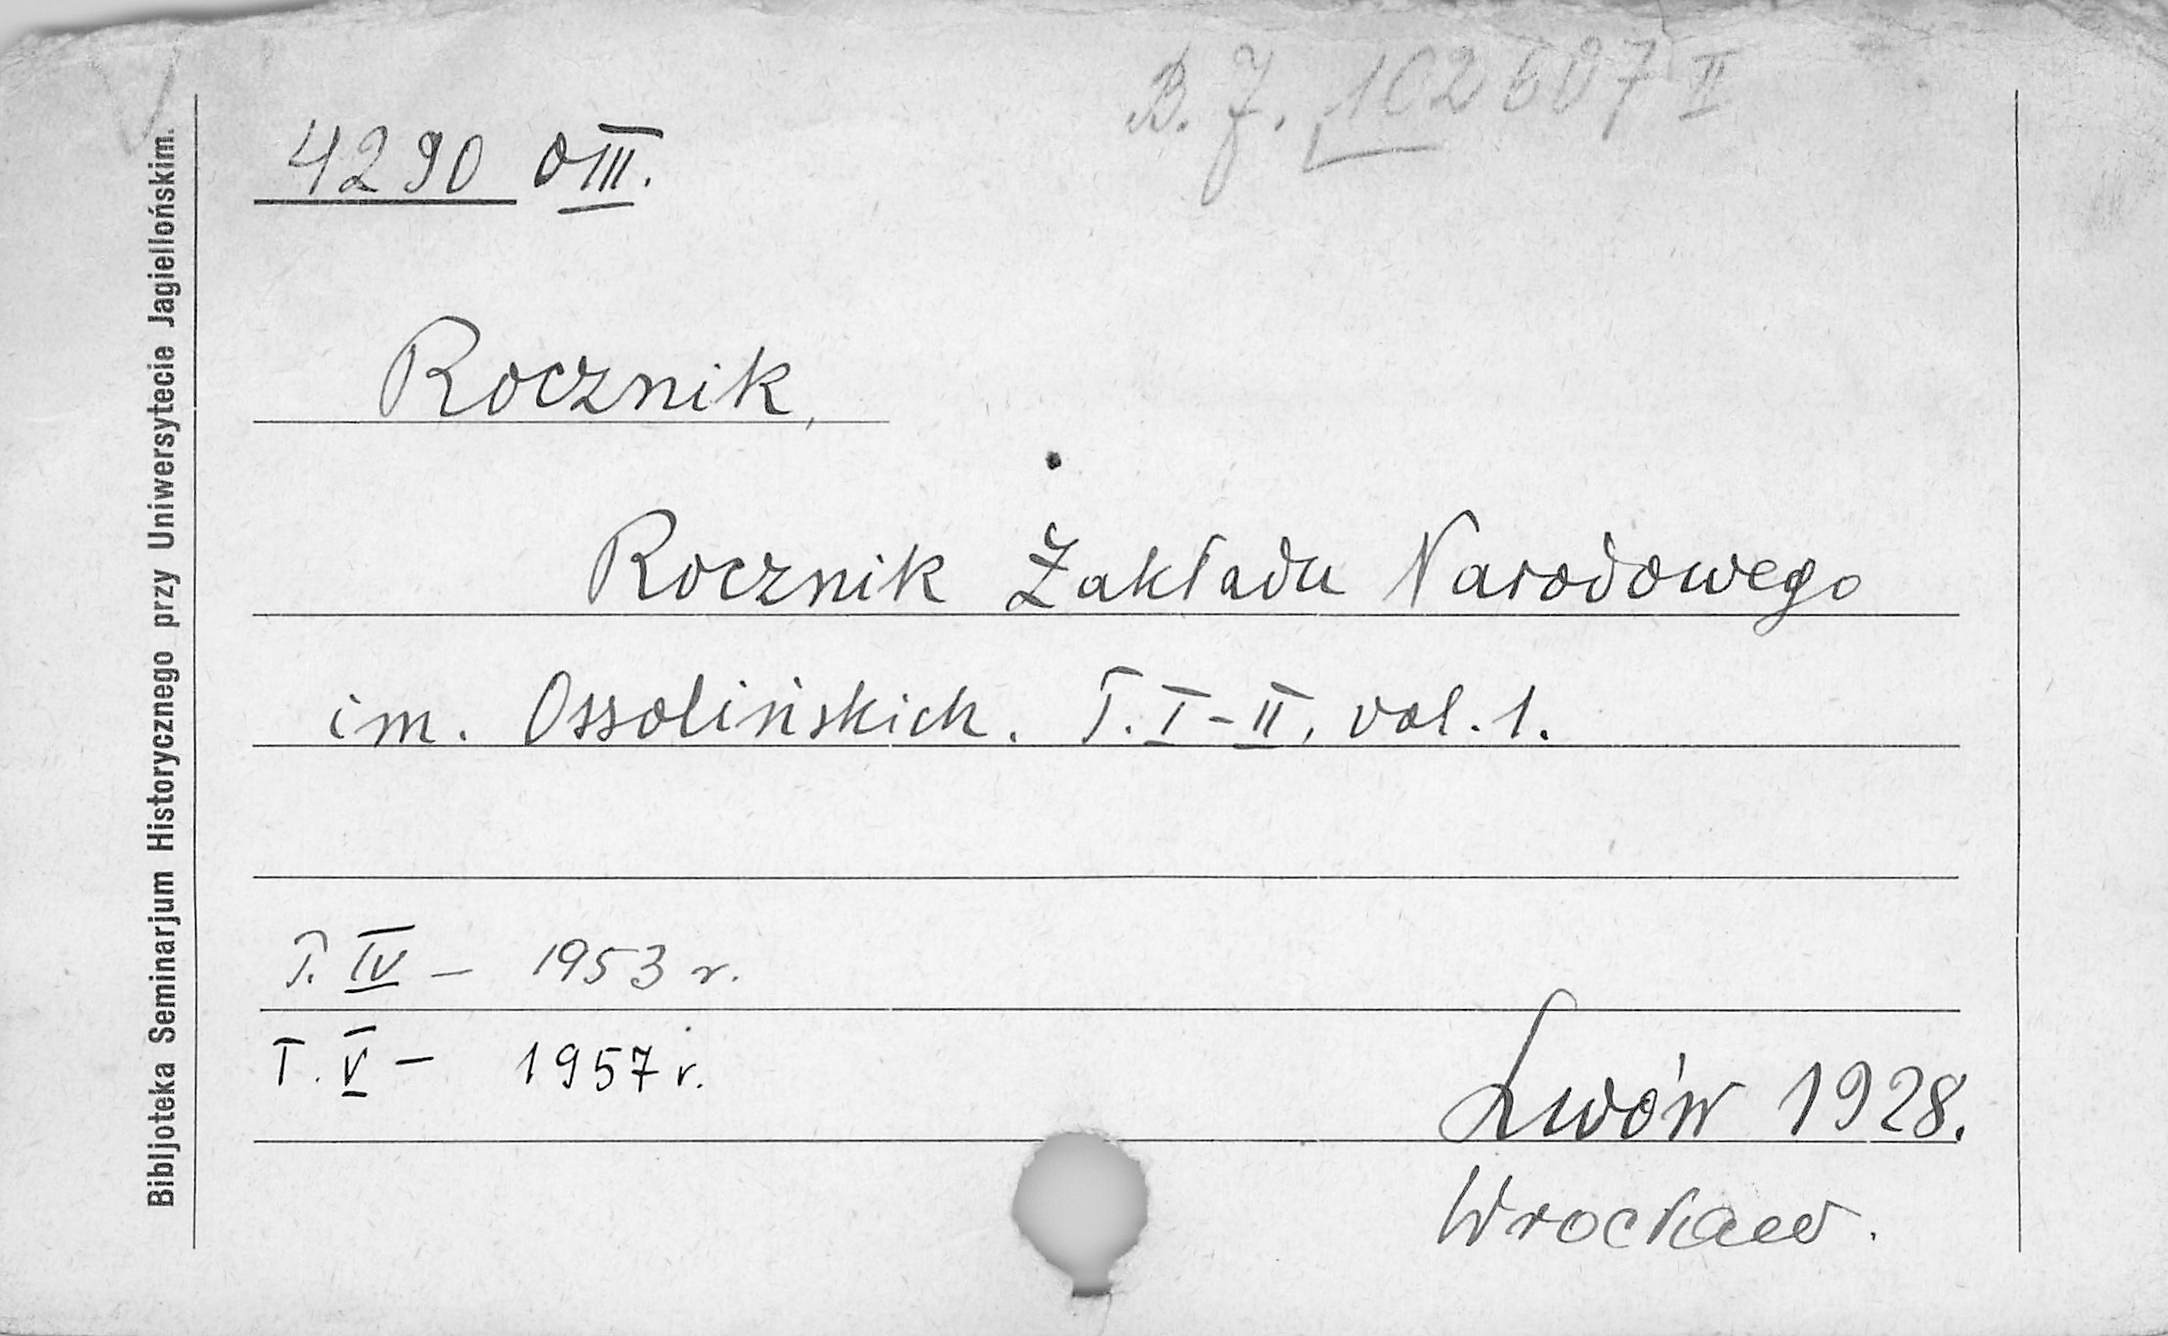 B. J. 102607 II
4290 O III.
Rocznik,
Rocznik Zakładu Narodowego
im. Ossolińskich. T. I-II, vol. 1.
T. IV - 1953 r.
T. V - 1957 r.
Lwów 1928.
Wrocław.
Bibljoteka Seminarjum Historycznego przy Uniwersytecie Jagiellońskim.